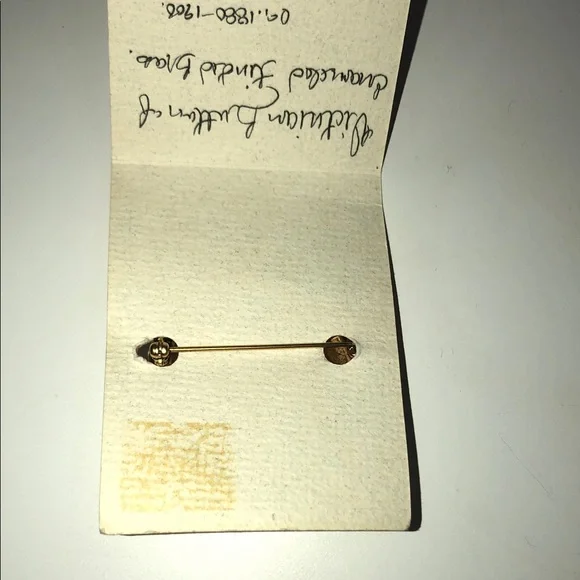 Victorian button of
enameled tinted brass.
ca. 1880-1900.